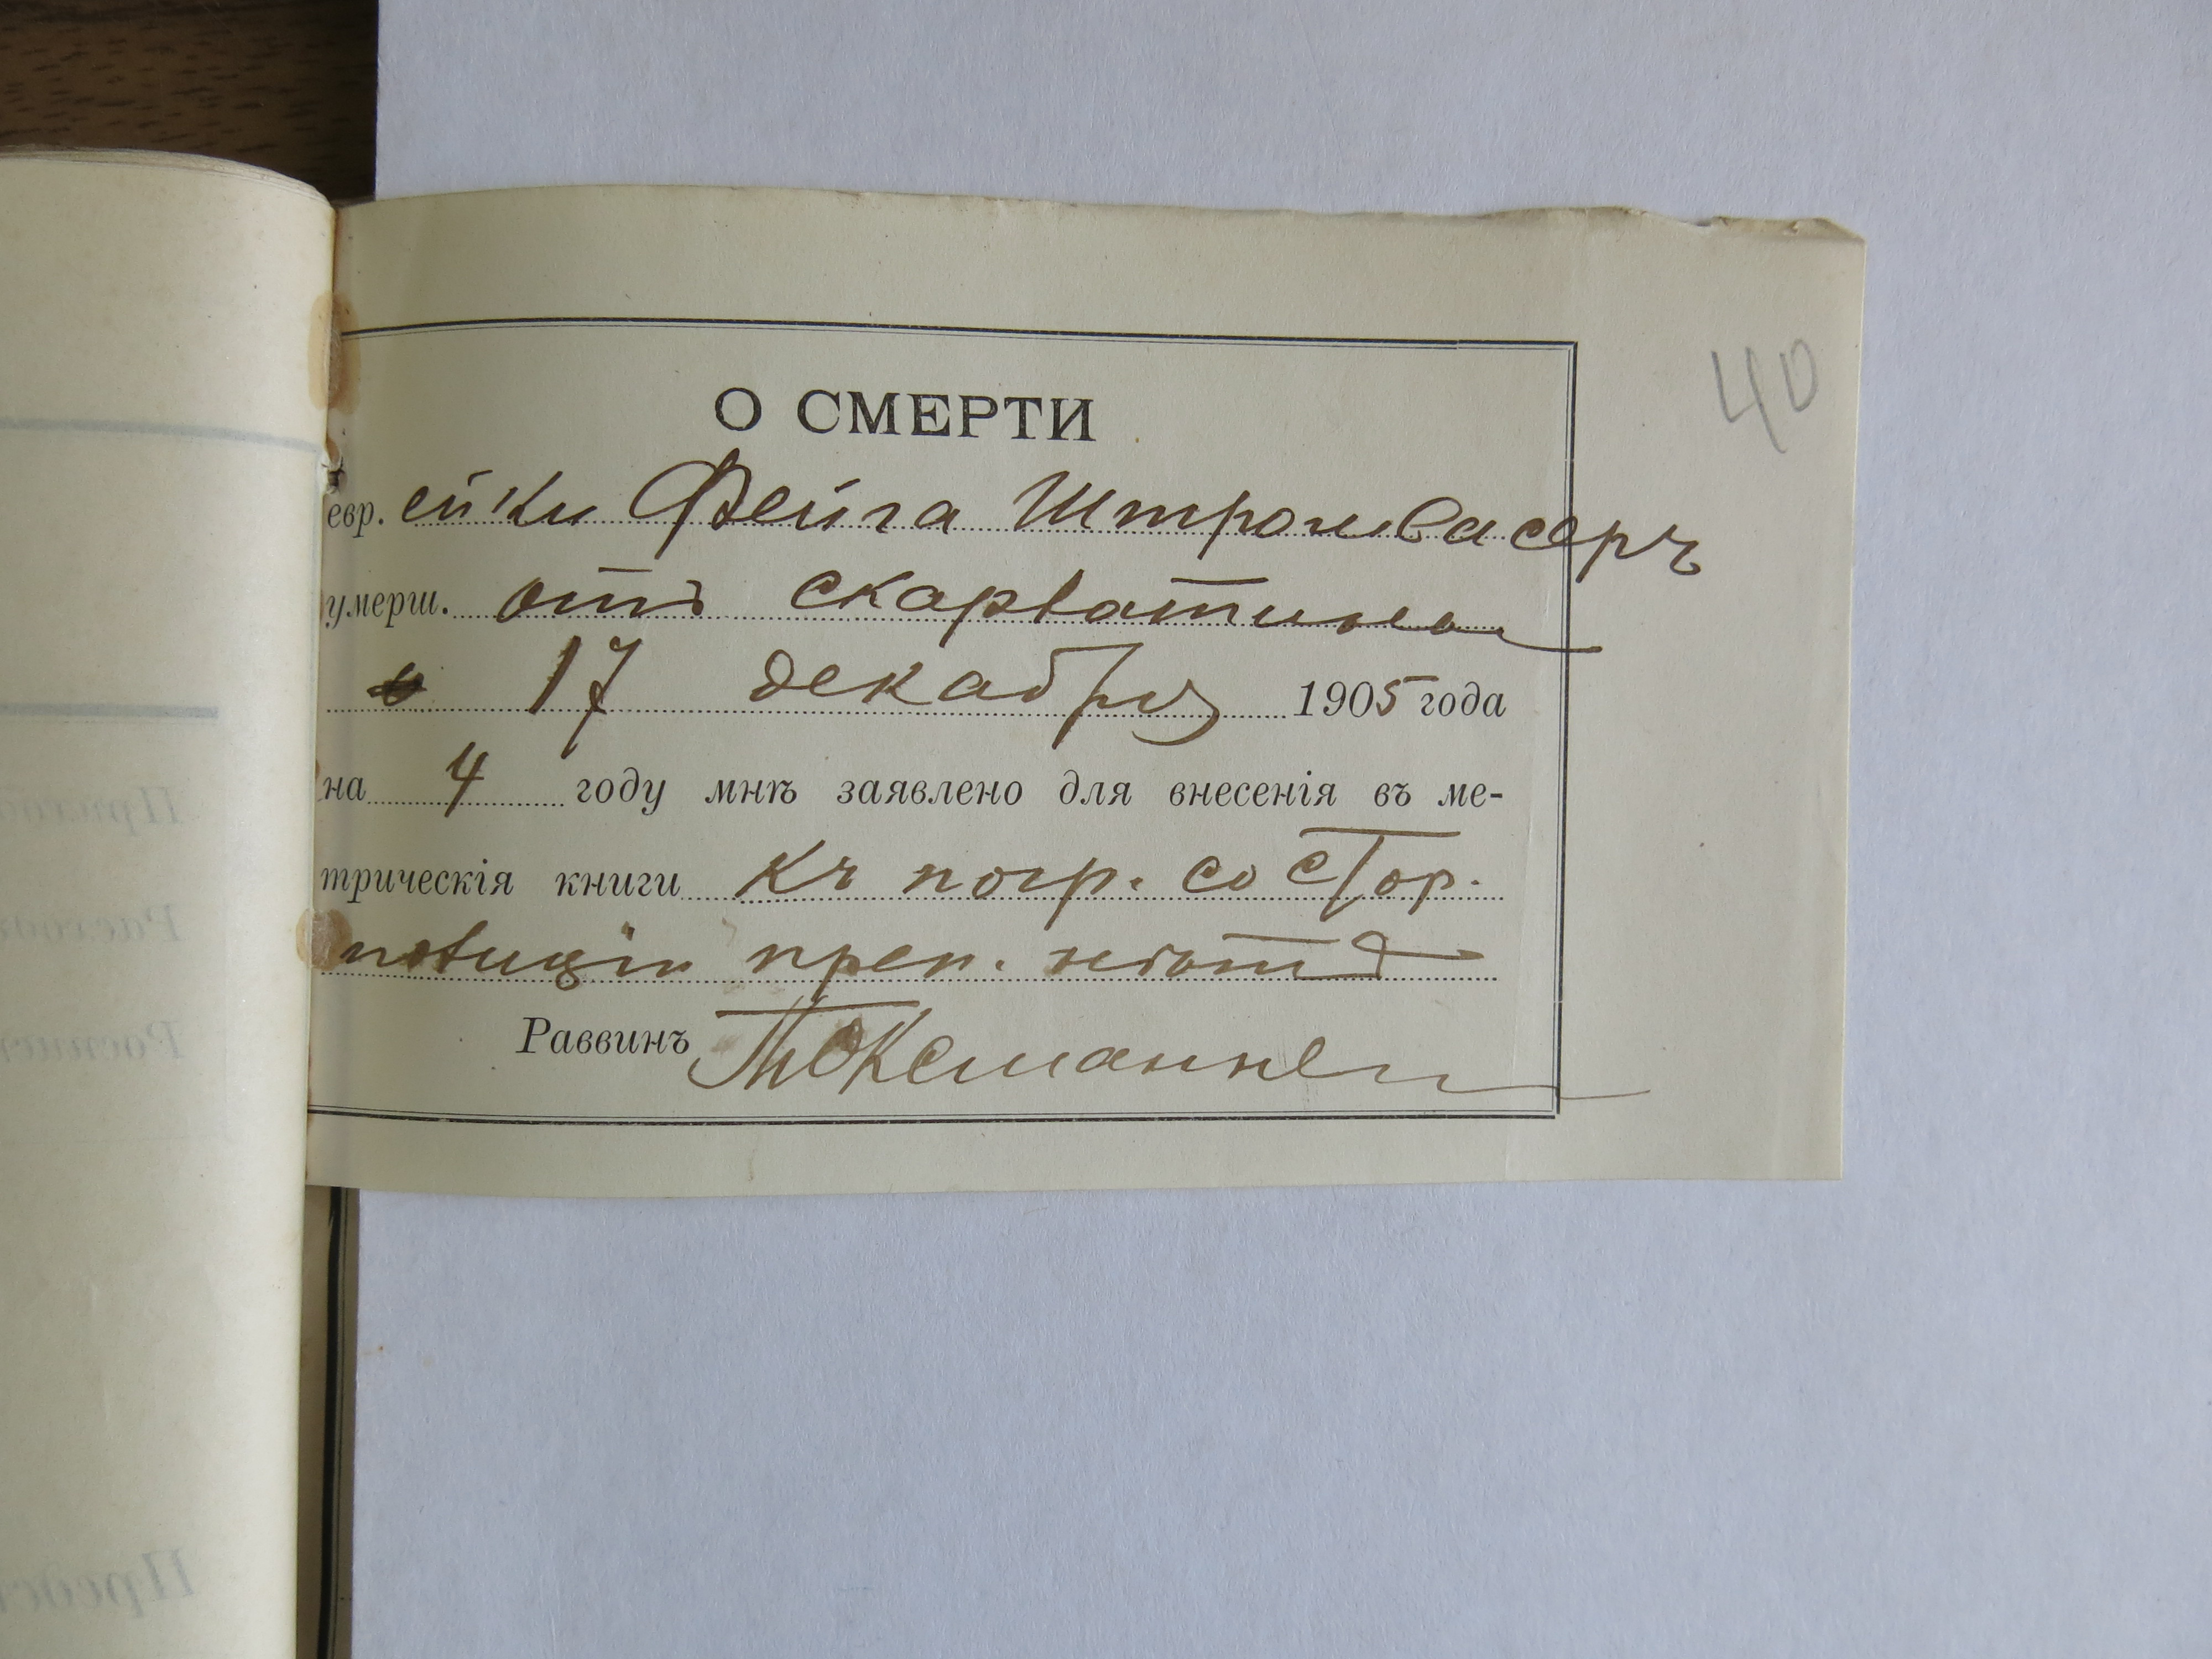 40
О СМЕРТИ
евр. ейки Фейга Штромвасеръ
умерш. отъ скарлатина
17 декабря 1905 года
на 4 году мнѣ заявлено для внесенія въ ме-
трическія книги Къ погр. со стор.
полиціи преп. нѣтъ
Раввинъ